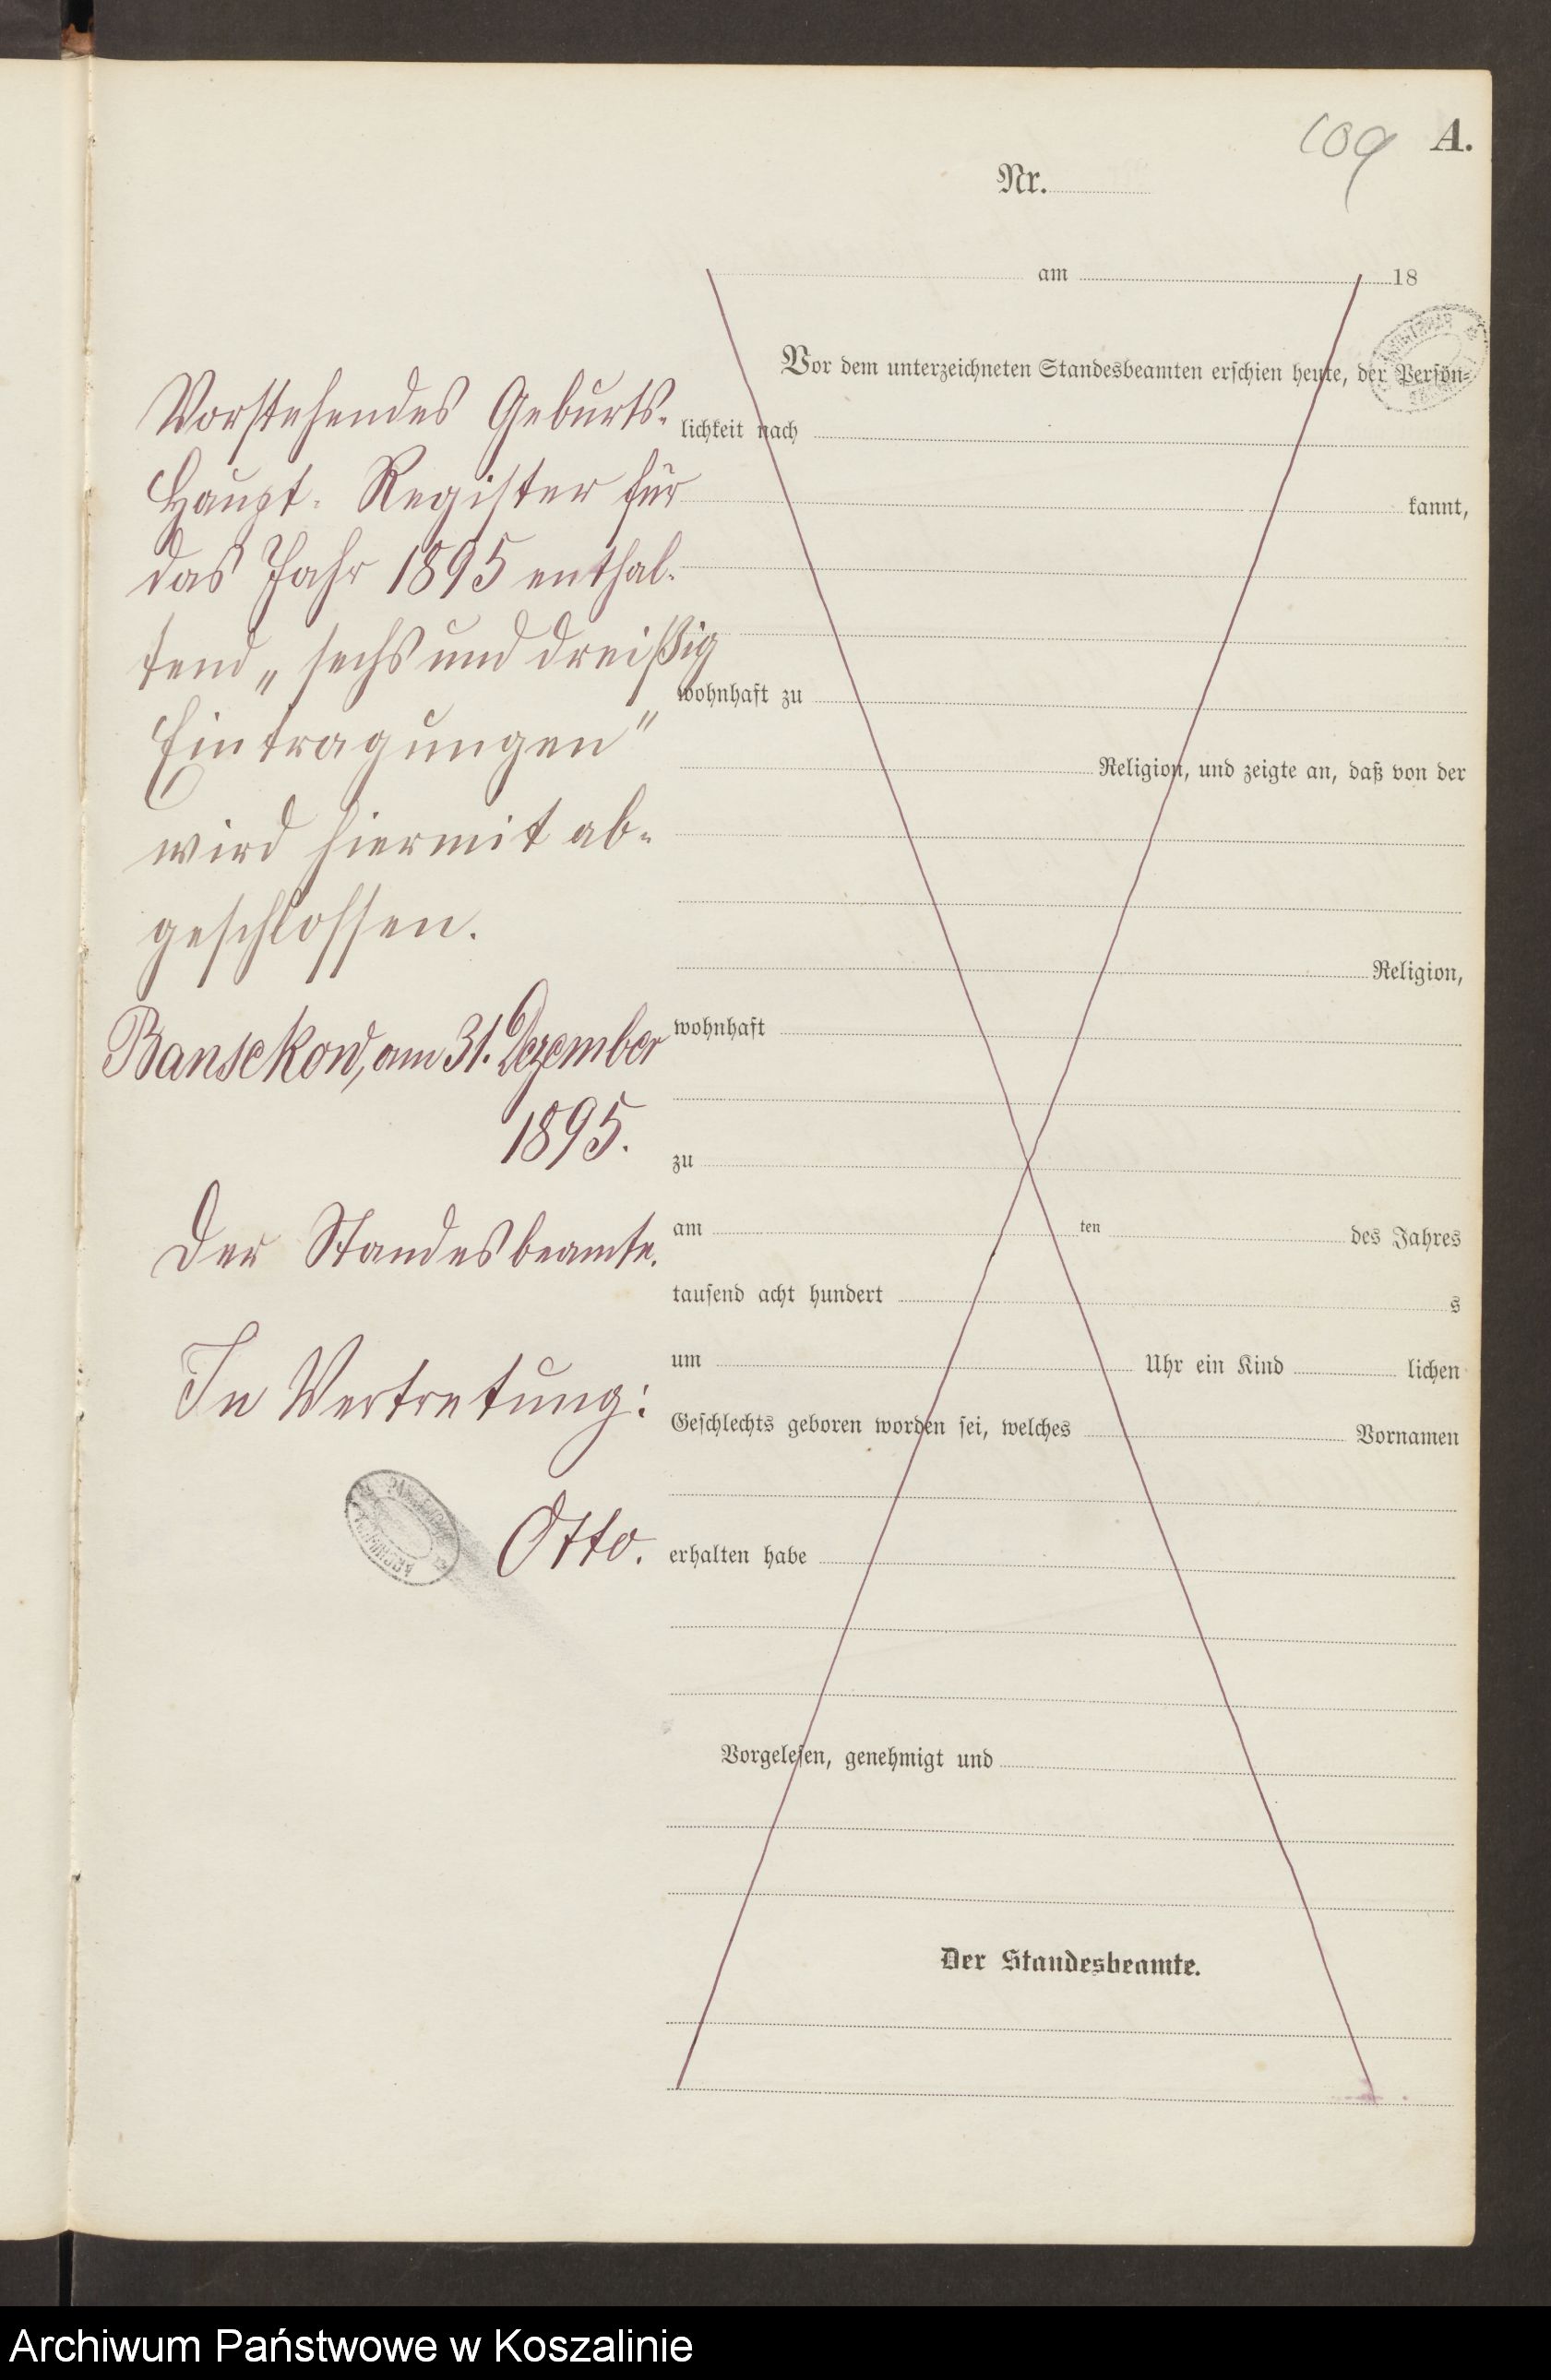 109 A.
Nr.
am 18
Vorstehendes Geburts-
Haupt-Register für
das Jahr 1895 enthal-
tend „sechs und dreißig
Eintragungen"
wird hiermit ab-
geschlossen.
Bansekow, am 31. Dezember
1895.
Der Standesbeamte.
In Vertretung:
Otto.
Vor dem unterzeichneten Standesbeamten erschien heute, der Persön-
lichkeit nach
kannt,
wohnhaft zu
Religion, und zeigte an, daß von der
Religion,
wohnhaft
zu
am ten des Jahres
tausend acht hundert s
um Uhr ein Kind lichen
Geschlechts geboren worden sei, welches Vornamen
erhalten habe
Vorgelesen, genehmigt und
Der Standesbeamte.
Archiwum Państwowe w Koszalinie